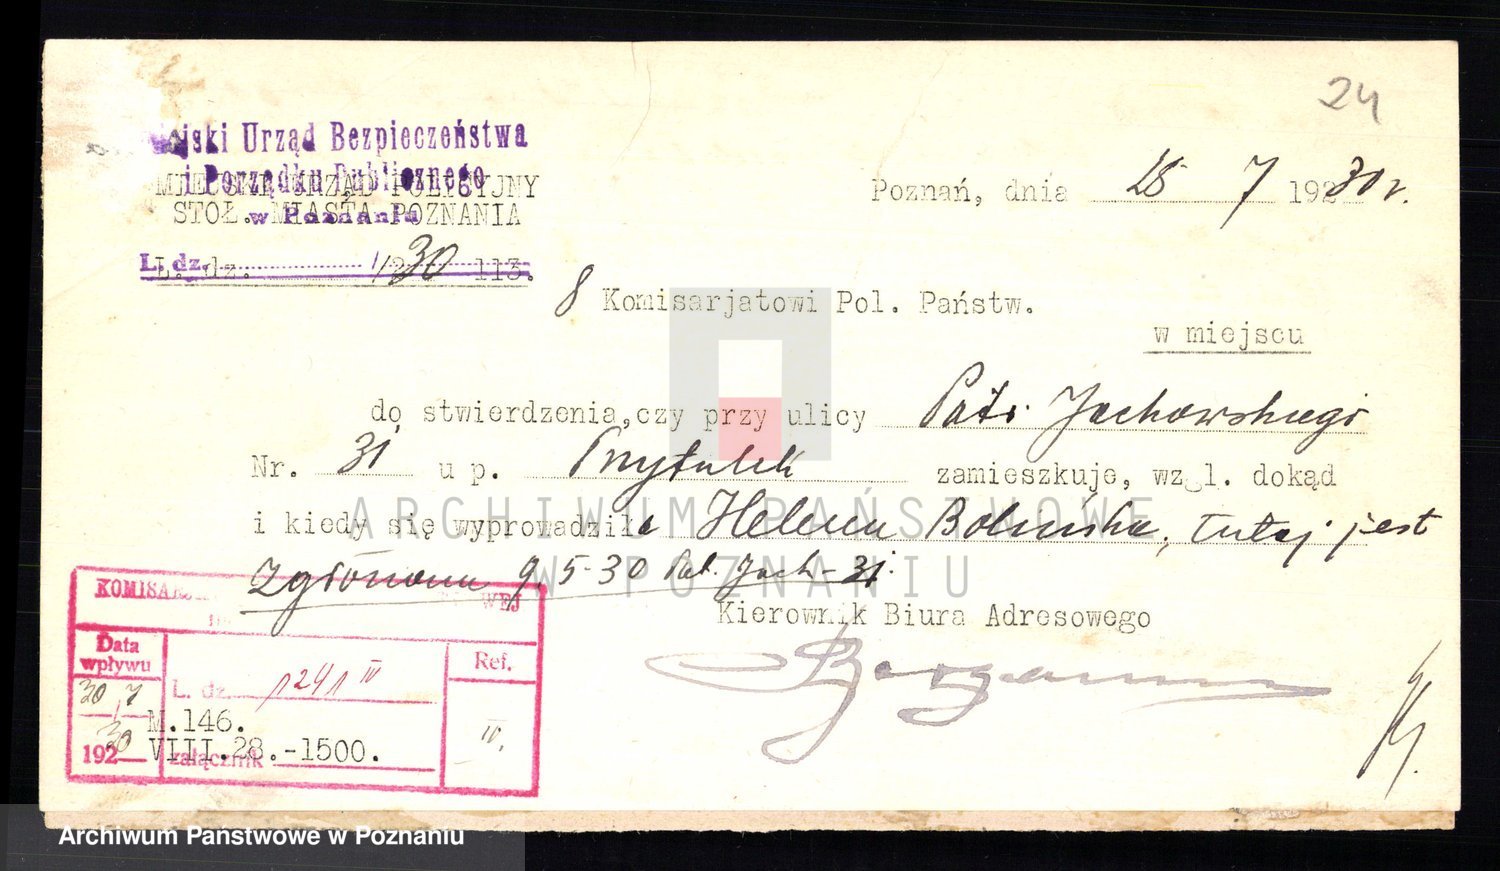 24
Urząd Bezpieczeństwa
i Porządku Publicznego
w Poznaniu
MIEJSKI URZĄD POLICYJNY
STOŁ. MIASTA POZNANIA
L. dz. 30 113.
L. dz.
Poznań, dnia 28 7 1930 r.
8 Komisarjatowi Pol. Państw.
w miejscu
do stwierdzenia, czy przy ulicy Patr. Jachowskiego
Nr. 31 u p. Przytulek zamieszkuje, wzgl. dokąd
i kiedy się wyprowadziła Helena tutaj jest
9.5-30 Pat. Jach- 31.
Kierownik Biura Adresowego
KOMISAR WEJ
Data
wpływu
30/7
1930
L. dz. 1241 IV
załącznik
Ref.
IV.
M.146.
VIII.28.-1500.
ARCHIWUM PAŃSTWOWE
W POZNANIU
Archiwum Państwowe w Poznaniu